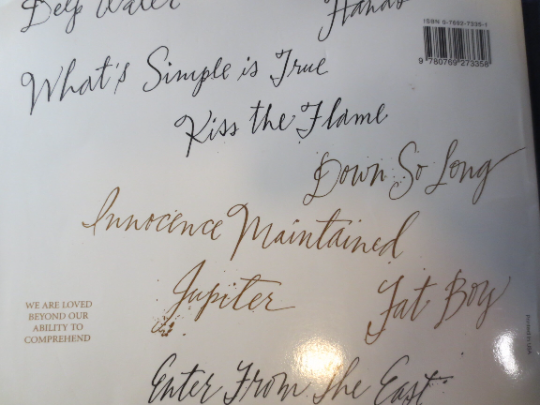 Deep Water
Hands
ISBN 0-7692-7335-1
9 780769 273358
What's Simple is True
Kiss the Flame
Down So Long
Innocence Maintained
Jupiter
Fat Boy
WE ARE LOVED
BEYOND OUR
ABILITY TO
COMPREHEND
Enter From the East